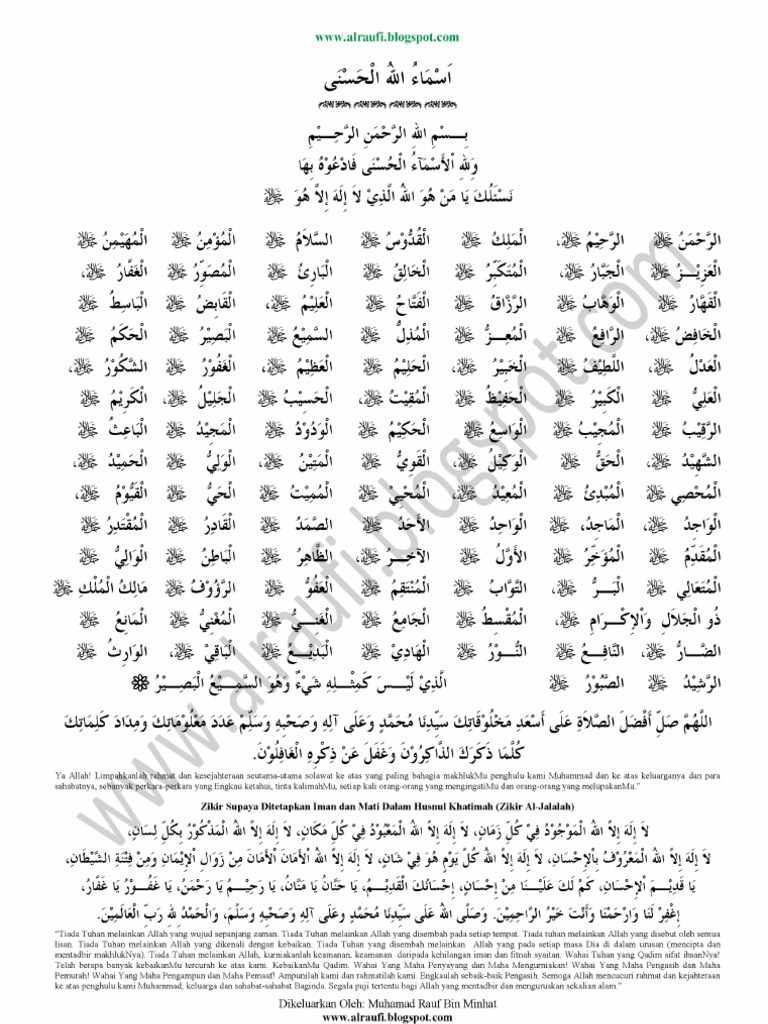 www.alraufi.blogspot.com
اَسْمَاءُ اللهِ الْحَسْنَى
بِسْمِ اللهِ الرَّحْمَنِ الرَّحِيْمِ
وَلِلهِ الْأَسْمَآءُ الْحُسْنَى فَادْعُوْهُ بِهَا
نَسْئَلُكَ يَا مَنْ هُوَ اللهُ الَّذِيْ لاَ إِلَهَ إِلاَّ هُوَ ﷻ
الرَّحْمَنُ ﷻ الرَّحِيْمُ ﷻ، الْمَلِكُ ﷻ الْقُدُّوْسُ ﷻ السَّلاَمُ ﷻ الْمُؤْمِنُ ﷻ الْمُهَيْمِنُ ﷻ
الْعَزِيْزُ ﷻ الْجَبَّارُ ﷻ، الْمُتَكَبِّرُ ﷻ الْخَالِقُ ﷻ الْبَارِئُ ﷻ الْمُصَوِّرُ ﷻ الْغَفَّارُ ﷻ،
الْقَهَّارُ ﷻ الْوَهَّابُ ﷻ الرَّزَّاقُ ﷻ الْفَتَّاحُ ﷻ الْعَلِيْمُ ﷻ، الْقَابِضُ ﷻ الْبَاسِطُ ﷻ
الْخَافِضُ ﷻ الرَّافِعُ ﷻ الْمُعِزُّ ﷻ الْمُذِلُّ ﷻ السَّمِيْعُ ﷻ الْبَصِيْرُ ﷻ الْحَكَمُ ﷻ
الْعَدْلُ ﷻ اللَّطِيْفُ ﷻ الْخَبِيْرُ ﷻ الْحَلِيْمُ ﷻ الْعَظِيْمُ ﷻ، الْغَفُوْرُ ﷻ الشَّكُوْرُ ﷻ،
الْعَلِيُّ ﷻ الْكَبِيْرُ ﷻ الْحَفِيْظُ ﷻ الْمُقِيْتُ ﷻ، الْحَسِيْبُ ﷻ الْجَلِيْلُ ﷻ، الْكَرِيْمُ ﷻ
الرَّقِيْبُ ﷻ الْمُجِيْبُ ﷻ الْوَاسِعُ ﷻ الْحَكِيْمُ ﷻ الْوَدُوْدُ ﷻ الْمَجِيْدُ ﷻ الْبَاعِثُ ﷻ
الشَّهِيْدُ ﷻ الْحَقُّ ﷻ الْوَكِيْلُ ﷻ، الْقَوِيُّ ﷻ الْمَتِيْنُ ﷻ، الْوَلِيُّ ﷻ الْحَمِيْدُ ﷻ،
الْمُحْصِي ﷻ الْمُبْدِئُ ﷻ الْمُعِيْدُ ﷻ الْمُحْيِي ﷻ الْمُمِيْتُ ﷻ الْحَيُّ ﷻ الْقَيُّوْمُ ﷻ،
الْوَاجِدُ ﷻ، الْمَاجِدُ ﷻ، الْوَاحِدُ ﷻ الْأَحَدُ ﷻ الصَّمَدُ ﷻ الْقَادِرُ ﷻ الْمُقْتَدِرُ ﷻ
الْمُقَدِّمُ ﷻ الْمُؤَخِّرُ ﷻ الأَوَّلُ ﷻ الآخِرُ ﷻ، الظَّاهِرُ ﷻ الْبَاطِنُ ﷻ الْوَالِيُّ ﷻ
الْمُتَعَالِي ﷻ الْبَرُّ ﷻ التَّوَّابُ ﷻ الْمُنْتَقِمُ ﷻ الْعَفُوُّ ﷻ الرَّؤُوْفُ ﷻ مَالِكُ الْمُلْكِ ﷻ
ذُو الْجَلاَلِ وَالْإِكْرَامِ ﷻ الْمُقْسِطُ ﷻ الْجَامِعُ ﷻ الْغَنِيُّ ﷻ الْمُغْنِيُّ ﷻ الْمَانِعُ ﷻ
الضَّارُّ ﷻ النَّافِعُ ﷻ النُّوْرُ ﷻ الْهَادِيْ ﷻ الْبَدِيْعُ ﷻ الْبَاقِيْ ﷻ، الْوَارِثُ ﷻ
الرَّشِيْدُ ﷻ الصَّبُوْرُ ﷻ الَّذِيْ لَيْسَ كَمِثْلِهِ شَيْءٌ وَهُوَ السَّمِيْعُ الْبَصِيْرُ
اَللَّهُمَّ صَلِّ أَفْضَلَ الصَّلاَةِ عَلَى أَسْعَدِ مَخْلُوْقَاتِكَ سَيِّدِنَا مُحَمَّدٍ وَعَلَى آلِهِ وَصَحْبِهِ وَسَلِّمْ عَدَدَ مَعْلُوْمَاتِكَ وَمِدَادَ كَلِمَاتِكَ
كُلَّمَا ذَكَرَكَ الذَّاكِرُوْنَ وَغَفَلَ عَنْ ذِكْرِهِ الْغَافِلُوْنَ.
Ya Allah! Limpahkanlah rahmat dan kesejahteraan seutama-utama solawat ke atas yang paling bahagia makhlukMu penghulu kami Muhammad dan ke atas keluarganya dan para
sahabatnya, sebanyak perkara-perkara yang Engkau ketahui, tinta kalimahMu, setiap kali orang-orang yang mengingatiMu dan orang-orang yang melupakanMu."
Zikir Supaya Ditetapkan Iman dan Mati Dalam Husnul Khatimah (Zikir Al-Jalalah)
لاَ إِلَهَ إِلاَّ اللهُ الْمَوْجُوْدُ فِيْ كُلِّ زَمَانٍ، لاَ إِلَهَ إِلاَّ اللهُ الْمَعْبُوْدُ فِيْ كُلِّ مَكَانٍ، لاَ إِلَهَ إِلاَّ اللهُ الْمَذْكُوْرُ بِكُلِّ لِسَانٍ،
لاَ إِلَهَ إِلاَّ اللهُ الْمَعْرُوْفُ بِالْإِحْسَانِ، لاَ إِلَهَ إِلاَّ اللهُ كُلَّ يَوْمٍ هُوَ فِيْ شَانٍ، لاَ إِلَهَ إِلاَّ اللهُ الْأَمَانَ الْأَمَانَ مِنْ زَوَالِ الْإِيْمَانِ وَمِنْ فِتْنَةِ الشَّيْطَانِ،
يَا قَدِيْمَ الْإِحْسَانِ، كَمْ لَكَ عَلَيْنَا مِنْ إِحْسَانٍ، إِحْسَانُكَ الْقَدِيْمُ، يَا حَنَّانُ يَا مَنَّانُ، يَا رَحِيْمُ يَا رَحْمَنُ، يَا غَفُوْرُ يَا غَفَّارُ،
إِغْفِرْ لَنَا وَارْحَمْنَا وَأَنْتَ خَيْرُ الرَّاحِمِيْنَ. وَصَلَّى اللهُ عَلَى سَيِّدِنَا مُحَمَّدٍ وَعَلَى آلِهِ وَصَحْبِهِ وَسَلَّمَ، وَالْحَمْدُ لِلهِ رَبِّ الْعَالَمِيْنَ.
"Tiada Tuhan melainkan Allah yang wujud sepanjang zaman. Tiada Tuhan melainkan Allah yang disembah pada setiap tempat. Tiada Tuhan melainkan Allah yang disebut oleh semua
lisan. Tiada Tuhan melainkan Allah yang dikenali dengan kebaikan. Tiada Tuhan yang disembah melainkan Allah yang pada setiap masa Dia di dalam urusan (mencipta dan
mentadbir makhlukNya). Tiada Tuhan melainkan Allah, kurniakanlah keamanan, keamanan daripada kehilangan iman dan fitnah syaitan. Wahai Tuhan yang Qadim sifat ihsanNya!
Telah berapa banyak kebaikanMu tercurah ke atas kami. KebaikanMu Qadim. Wahai Yang Maha Penyayang dan Maha Mengurniakan! Wahai Yang Maha Pengasih dan Maha
Pemurah! Wahai Yang Maha Pengampun dan Maha Pemaaf! Ampunilah kami dan rahmatilah kami. Engkaulah sebaik-baik Pengasih. Semoga Allah mencucuri rahmat dan kejahteraan
ke atas penghulu kami Muhammad, keluarga dan sahabat-sahabat Baginda. Segala puji tertentu bagi Allah yang mentadbir dan menguruskan sekalian alam."
Dikeluarkan Oleh: Muhamad Rauf Bin Minhat
www.alraufi.blogspot.com
www.alraufi.blogspot.com